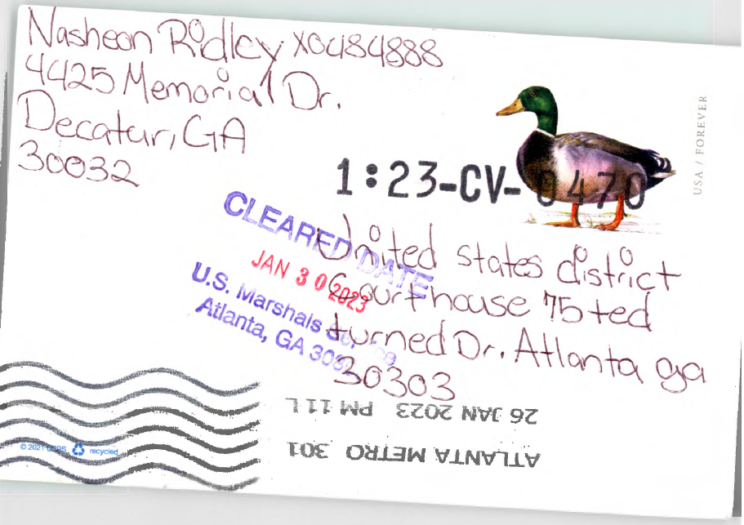 Nasheon Ridley X0484888
4425 Memorial Dr.
Decatur, GA
30032
USA / FOREVER
1:23-CV-0470
CLEARED DATE
JAN 30 2023
U.S. Marshals
Atlanta, GA
United states district
Courthouse 75 ted
turned Dr. Atlanta ga
30303
26 JAN 2023 PM 11 L
ATLANTA METRO 301
© 2021 USPS recycled